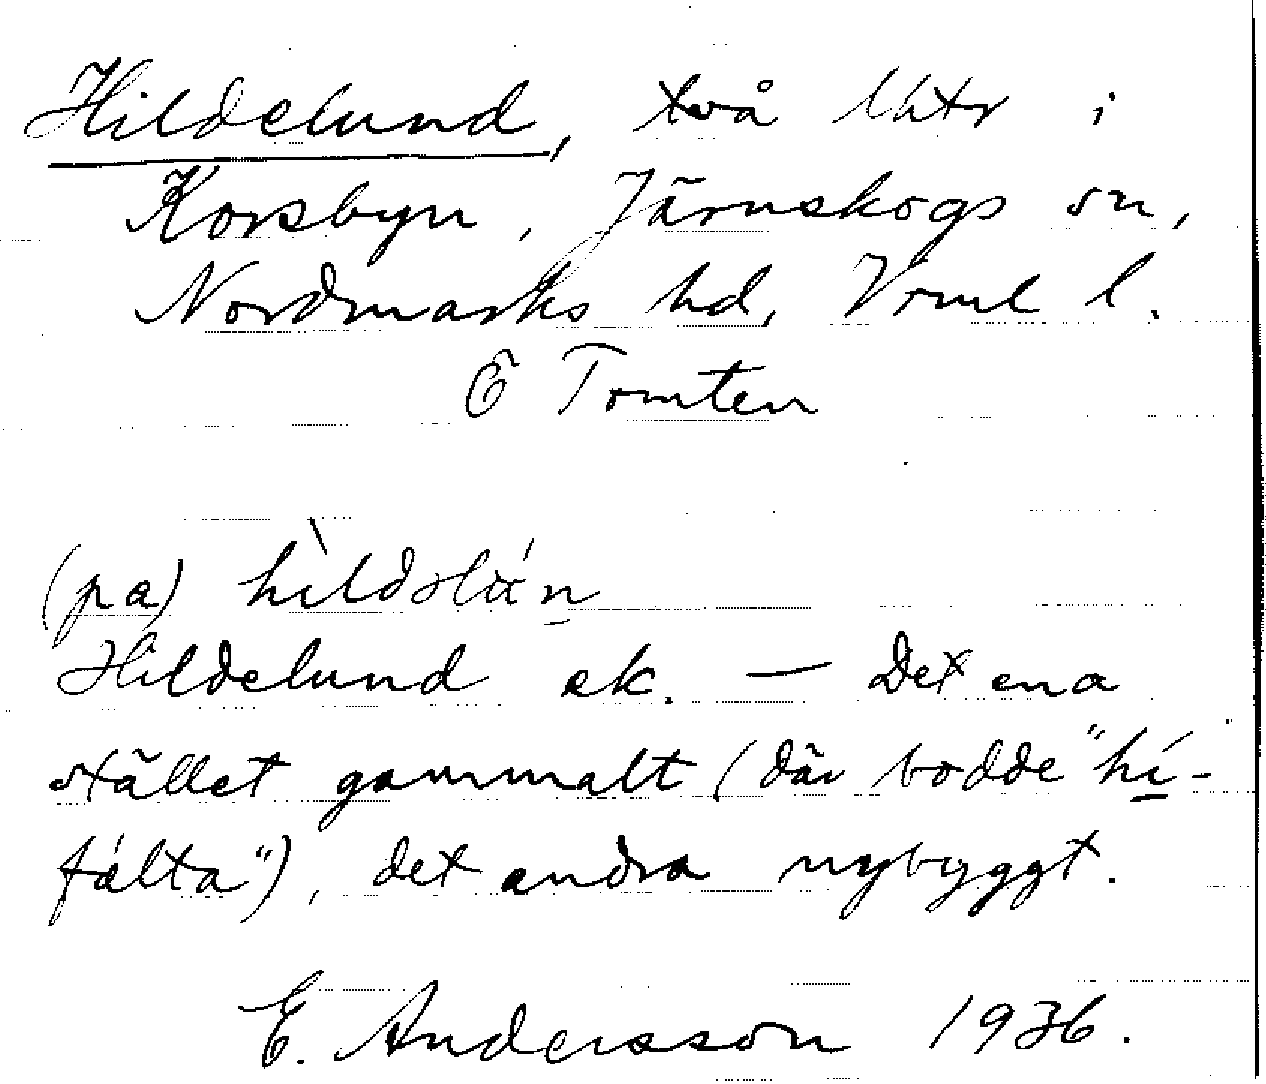 Hildelund, två lhtr i
Korsbyn, Järnskogs sn,
Nordmarks hd, Vrml l.
E Tomten
(pa)
Hildelund ek. — Det ena
stället gammalt (där bodde "hí-
fálta"), det andra nybyggt.
E. Andersson 1936.